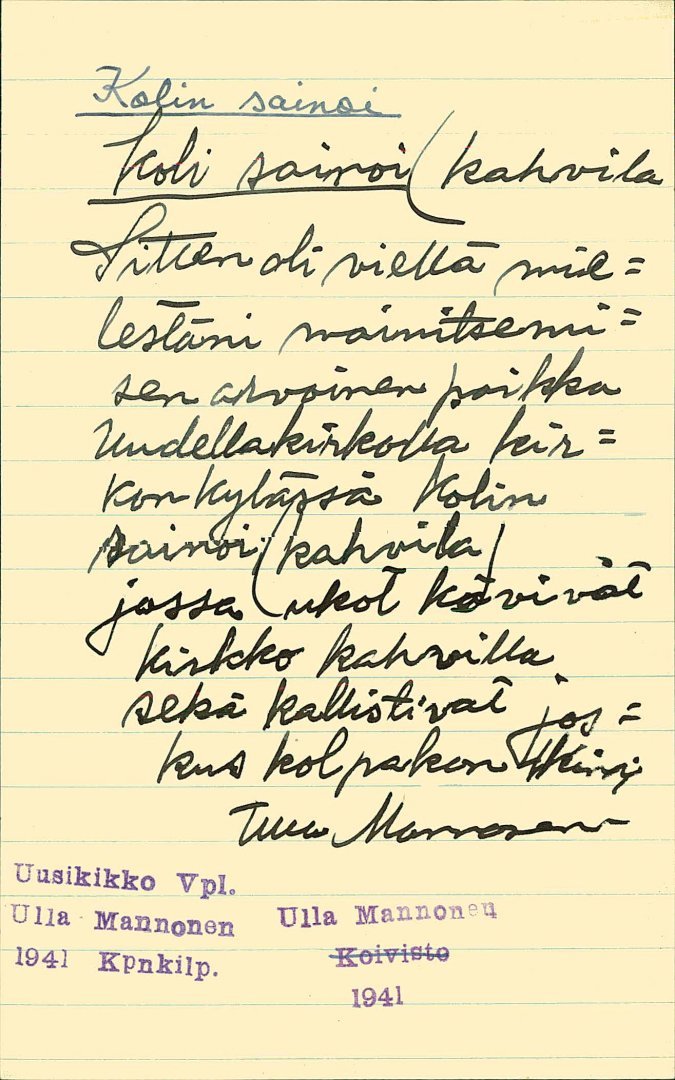 Kolin sainoi
Koli sainoi (kahvila
Sitten oli vieltä mie=
lestäni mainitsemi=
sen arvoinen paikka
Uudellakirkolla kir=
konkylässä Kolin
sainoi (kahvila)
jossa ukot kävivät
kirkko kahvilla
sekä kallistivat jos=
kus kolpakon
Ulla Mannonen
Uusikikko Vpl.
Ulla Mannonen
1941 Kpnkilp.
Ulla Mannonen
Koivisto
1941